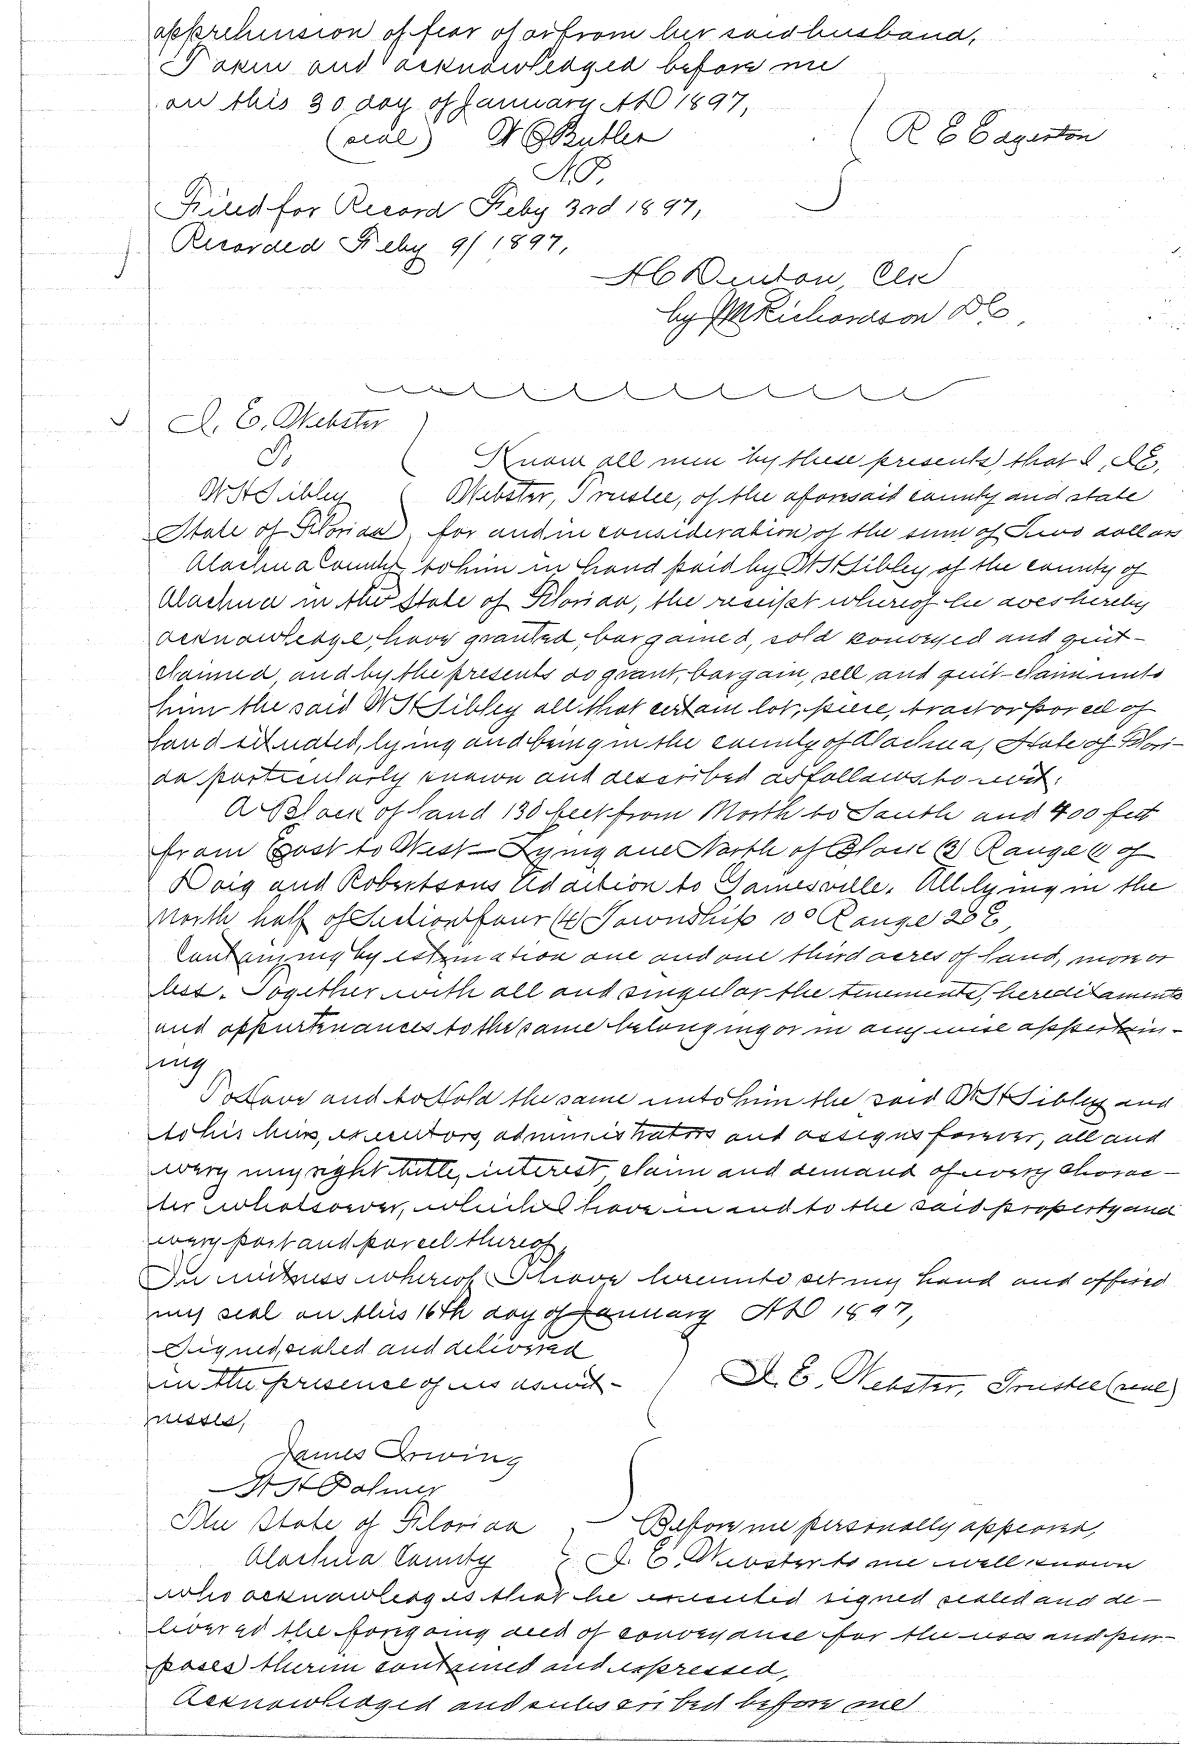 apprehension of fear of or from her said husband,
Taken and acknowledged before me
on this 30 day of January AD 1897,
(seal) W C Butler R E Edgerton
N.P.
Filed for Record Feby 3rd 1897,
Recorded Feby 9/1897,
H C Denton, Clk
by J M Richardson D C,
I. E. Webster
To
Know all men by these presents, that I, I E,
W H Sibley Webster, Trustee, of the aforesaid county and state
State of Florida for and in consideration of the sum of Two dollars
Alachua County to him in hand paid by W H Sibley of the county of
Alachua in the State of Florida, the receipt whereof he does hereby
acknowledge, have granted, bargained, sold conveyed and quit-
claimed, and by the presents do grant, bargain, sell and quit-claim unto
him the said W H Sibley all that certain lot, piece, tract or parcel of
land situated, lying and being in the county of Alachua, State of Flori-
da particularly known and described as follows to wit:
A Block of land 130 feet from North to South and 400 feet
from East to West Lying one North of Block (3) Range of
Doig and Robertsons Addition to Gainesville. All lying in the
North half of Section four (4) Township 10 Range 20 E,
Containing by estimation one and one third acres of land, more or
less. Together with all and singular the tenements, hereditaments
and appurtenances to the same belonging or in any wise appertain-
ing
To Have and to Hold the same unto him the said W H Sibley and
to his heirs, executors, administrators and assigns forever, all and
every my right title, interest, claim and demand of every charac-
ter whatsoever, which I have in and to the said property and
every part and parcel thereof,
In witness whereof I have hereunto set my hand and affixed
my seal on this 16th day of January AD 1897,
Signed, sealed and delivered
in the presence of us as wit- I. E. Webster, Trustee (seal)
nesses,
James Irwing
W H Palmer
The State of Florida Before me personally appeared,
Alachua County I. E. Webster to me well known
who acknowledges that he executed signed sealed and de-
livered the foregoing deed of conveyance for the uses and pur-
poses therein contained and expressed,
Acknowledged and subscribed before me